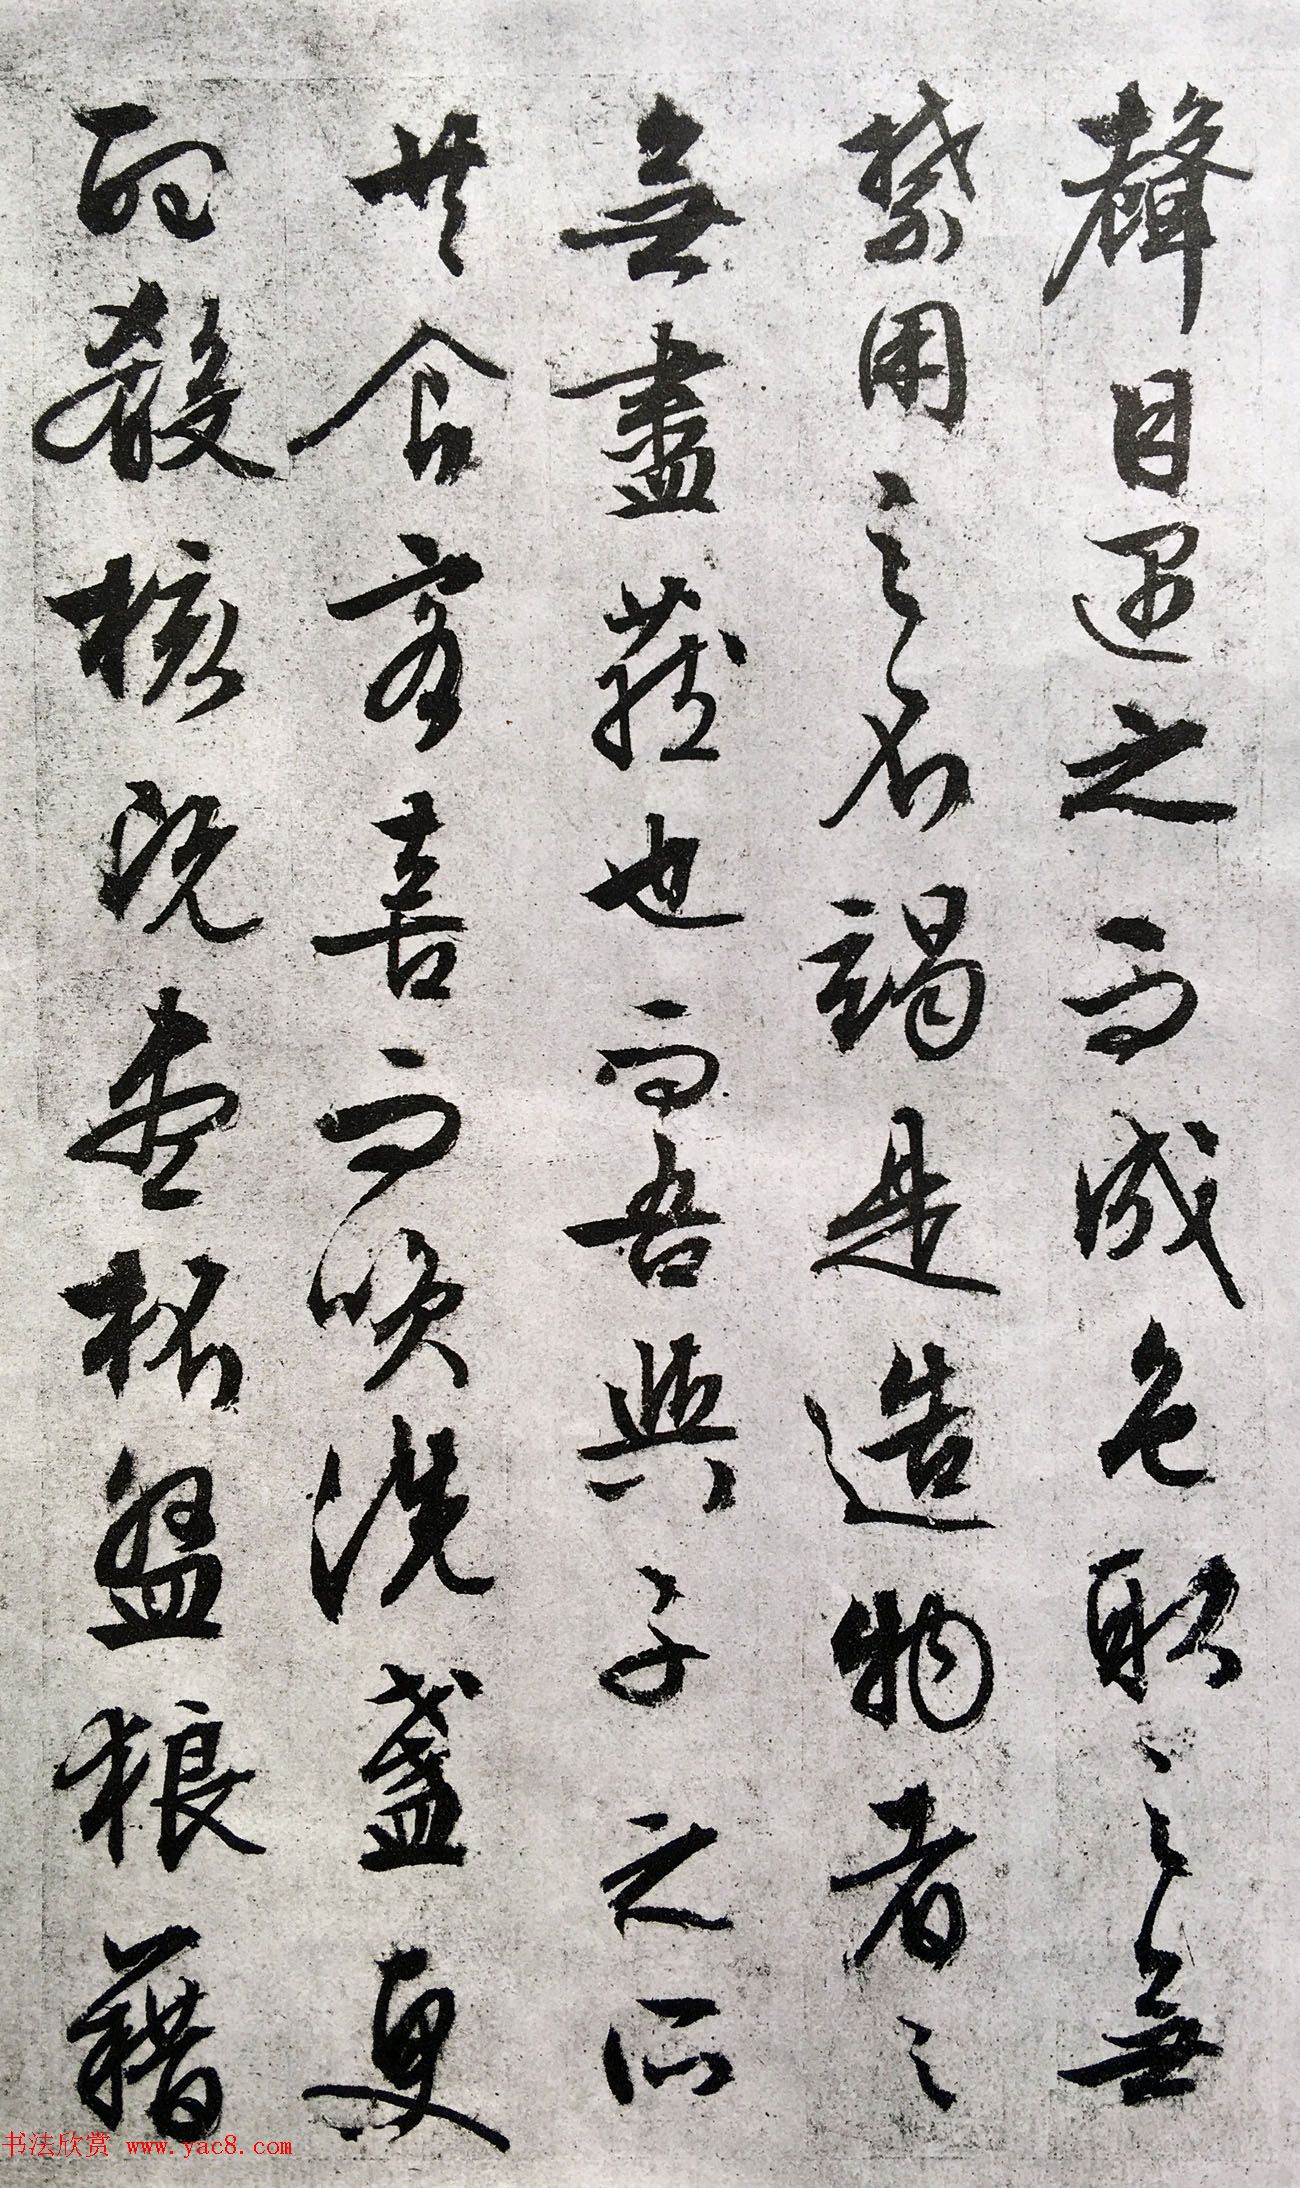 聲目遇之而成色取之無
禁用之不竭是造物者之
無盡藏也而吾與子之所
共食客喜而笑洗盞更
酌殽核既盡杯盤狼藉
书法欣赏 www.yac8.com